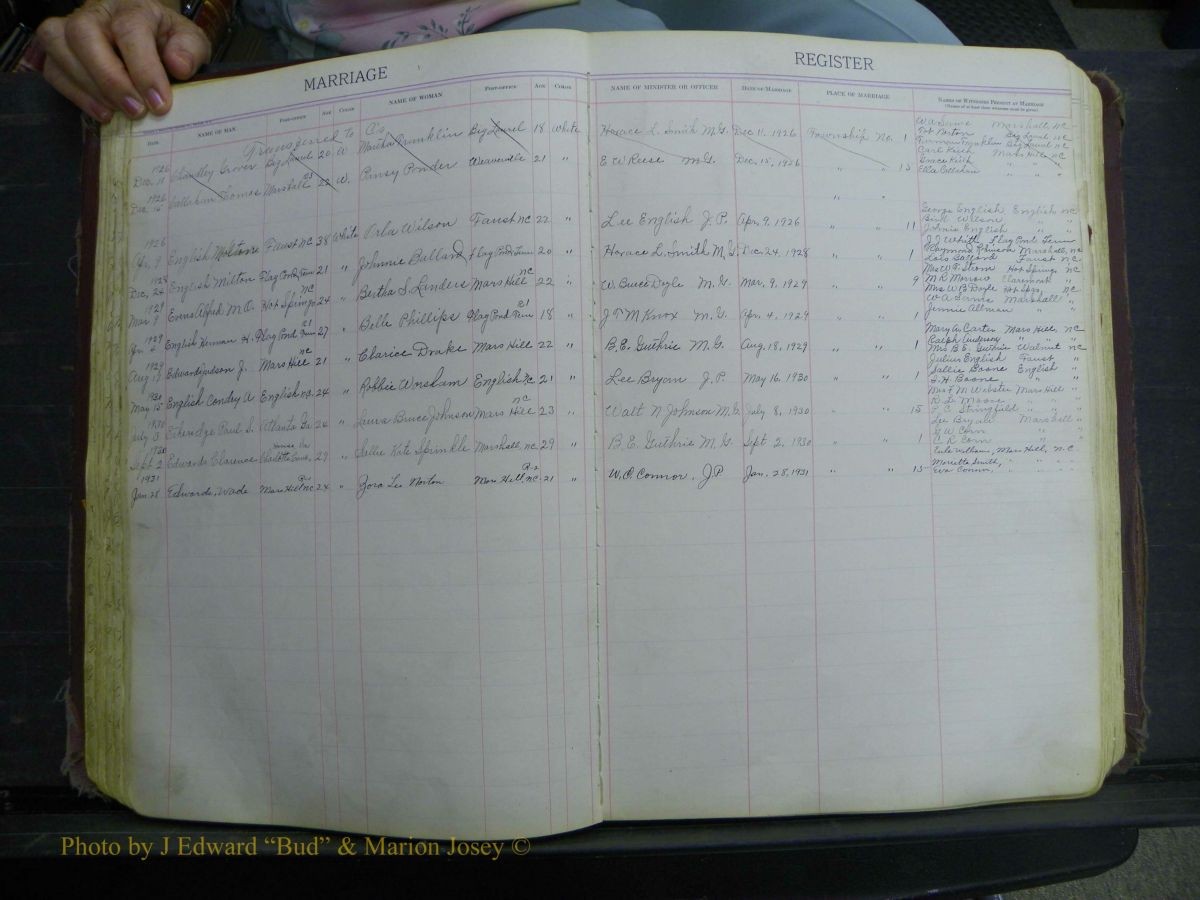 MARRIAGE REGISTER
DATE NAME OF MAN POST-OFFICE AGE COLOR NAME OF WOMAN POST-OFFICE AGE COLOR NAME OF MINISTER OR OFFICER DATE OF MARRIAGE PLACE OF MARRIAGE NAMES OF WITNESSES PRESENT AT MARRIAGE
Transferred to C's
1926 Dec. 11 Chandley Grover Big Laurel 20 W. Martha Franklin Big Laurel 18 White Horace L. Smith M.G. Dec. 11, 1926 Township No. 1
Marshall, NC
Big Laurel NC
Carl Keith Mars Hill NC
1926 Dec. 15 Callahan Thomas Marshall R3 22 W. Pansy Ponder Weaverville 21 " E W Reese M.G. Dec. 15, 1926 " " 13
Grace Keith " "
Ella Callahan " "
1926 English Faust NC 38 White Orla Wilson Faust NC 22 " Lee English J.P. Apr. 9, 1926 " " 11
George English English NC
Bird Wilson
Johnie English " "
1928 Dec. 24 English Milton Flag Pond Tenn 21 " Johnnie Ballard Flag Pond Tenn 20 " Horace L. Smith M.G. Dec. 24, 1928 " " 1
J J White Flag Pond Tenn
Marshall, NC
Lois Ballard Faust NC
1929 Mar. 9 Evens Alfred M.O. Hot Springs NC 24 " Bertha S. Landers Mars Hill NC 22 " W. Bruce Doyle M.G. Mar. 9, 1929 " " 9
Hot Springs NC
M R Morrow Claremont "
Mrs W B Doyle Hot Spgs, NC
1929 English Herman H. Flag Pond Tenn R1 27 " Belle Phillips Flag Pond Tenn R1 18 " J T M Knox M.G. Apr. 4, 1929 " " 1
Marshall "
Jennie Allman "
1929 Aug 17 Edwards Judson J. Mars Hill NC 21 " Clarice Drake Mars Hill 22 " B.E. Guthrie M.G. Aug. 18, 1929 " " 1
Mary A. Carter Mars Hill, NC
Ralph Anderson " " "
Mrs B.E. Guthrie Walnut NC
1930 May 15 English Condry A English N.C. 24 " Robbie Worsham English NC 21 " Lee Bryan J.P. May 16, 1930 " " 1
Julius English Faust "
Sallie Boone English "
H. Boone " "
1930 July 3 Etheridge Paul S. Atlanta Ga. 26 " Laura Bruce Johnson Mars Hill NC 23 " Walt N Johnson M.G. July 8, 1930 " " 15
Mrs F M Webster Mars Hill "
R. L. Moore " " "
P. C. Stringfield " " "
1930 Sept 2 Edwards Clarence Charlotte 29 " Sallie Kate Sprinkle Marshall, NC 29 " B.E. Guthrie M.G. Sept 2, 1930 " " 1
Marshall "
G W Corn " "
C R Corn " "
1931 Jan. 25 Edwards, Wade Mars Hill NC 24 " Zora Lee Norton Mars Hill, NC R-2 21 " W.O. Connor, J.P Jan. 25, 1931 " " 15
Mars Hill, N.C.
Mariette Smith, " " " "
Eva Connor, " " " "
Photo by J Edward “Bud” & Marion Josey ©